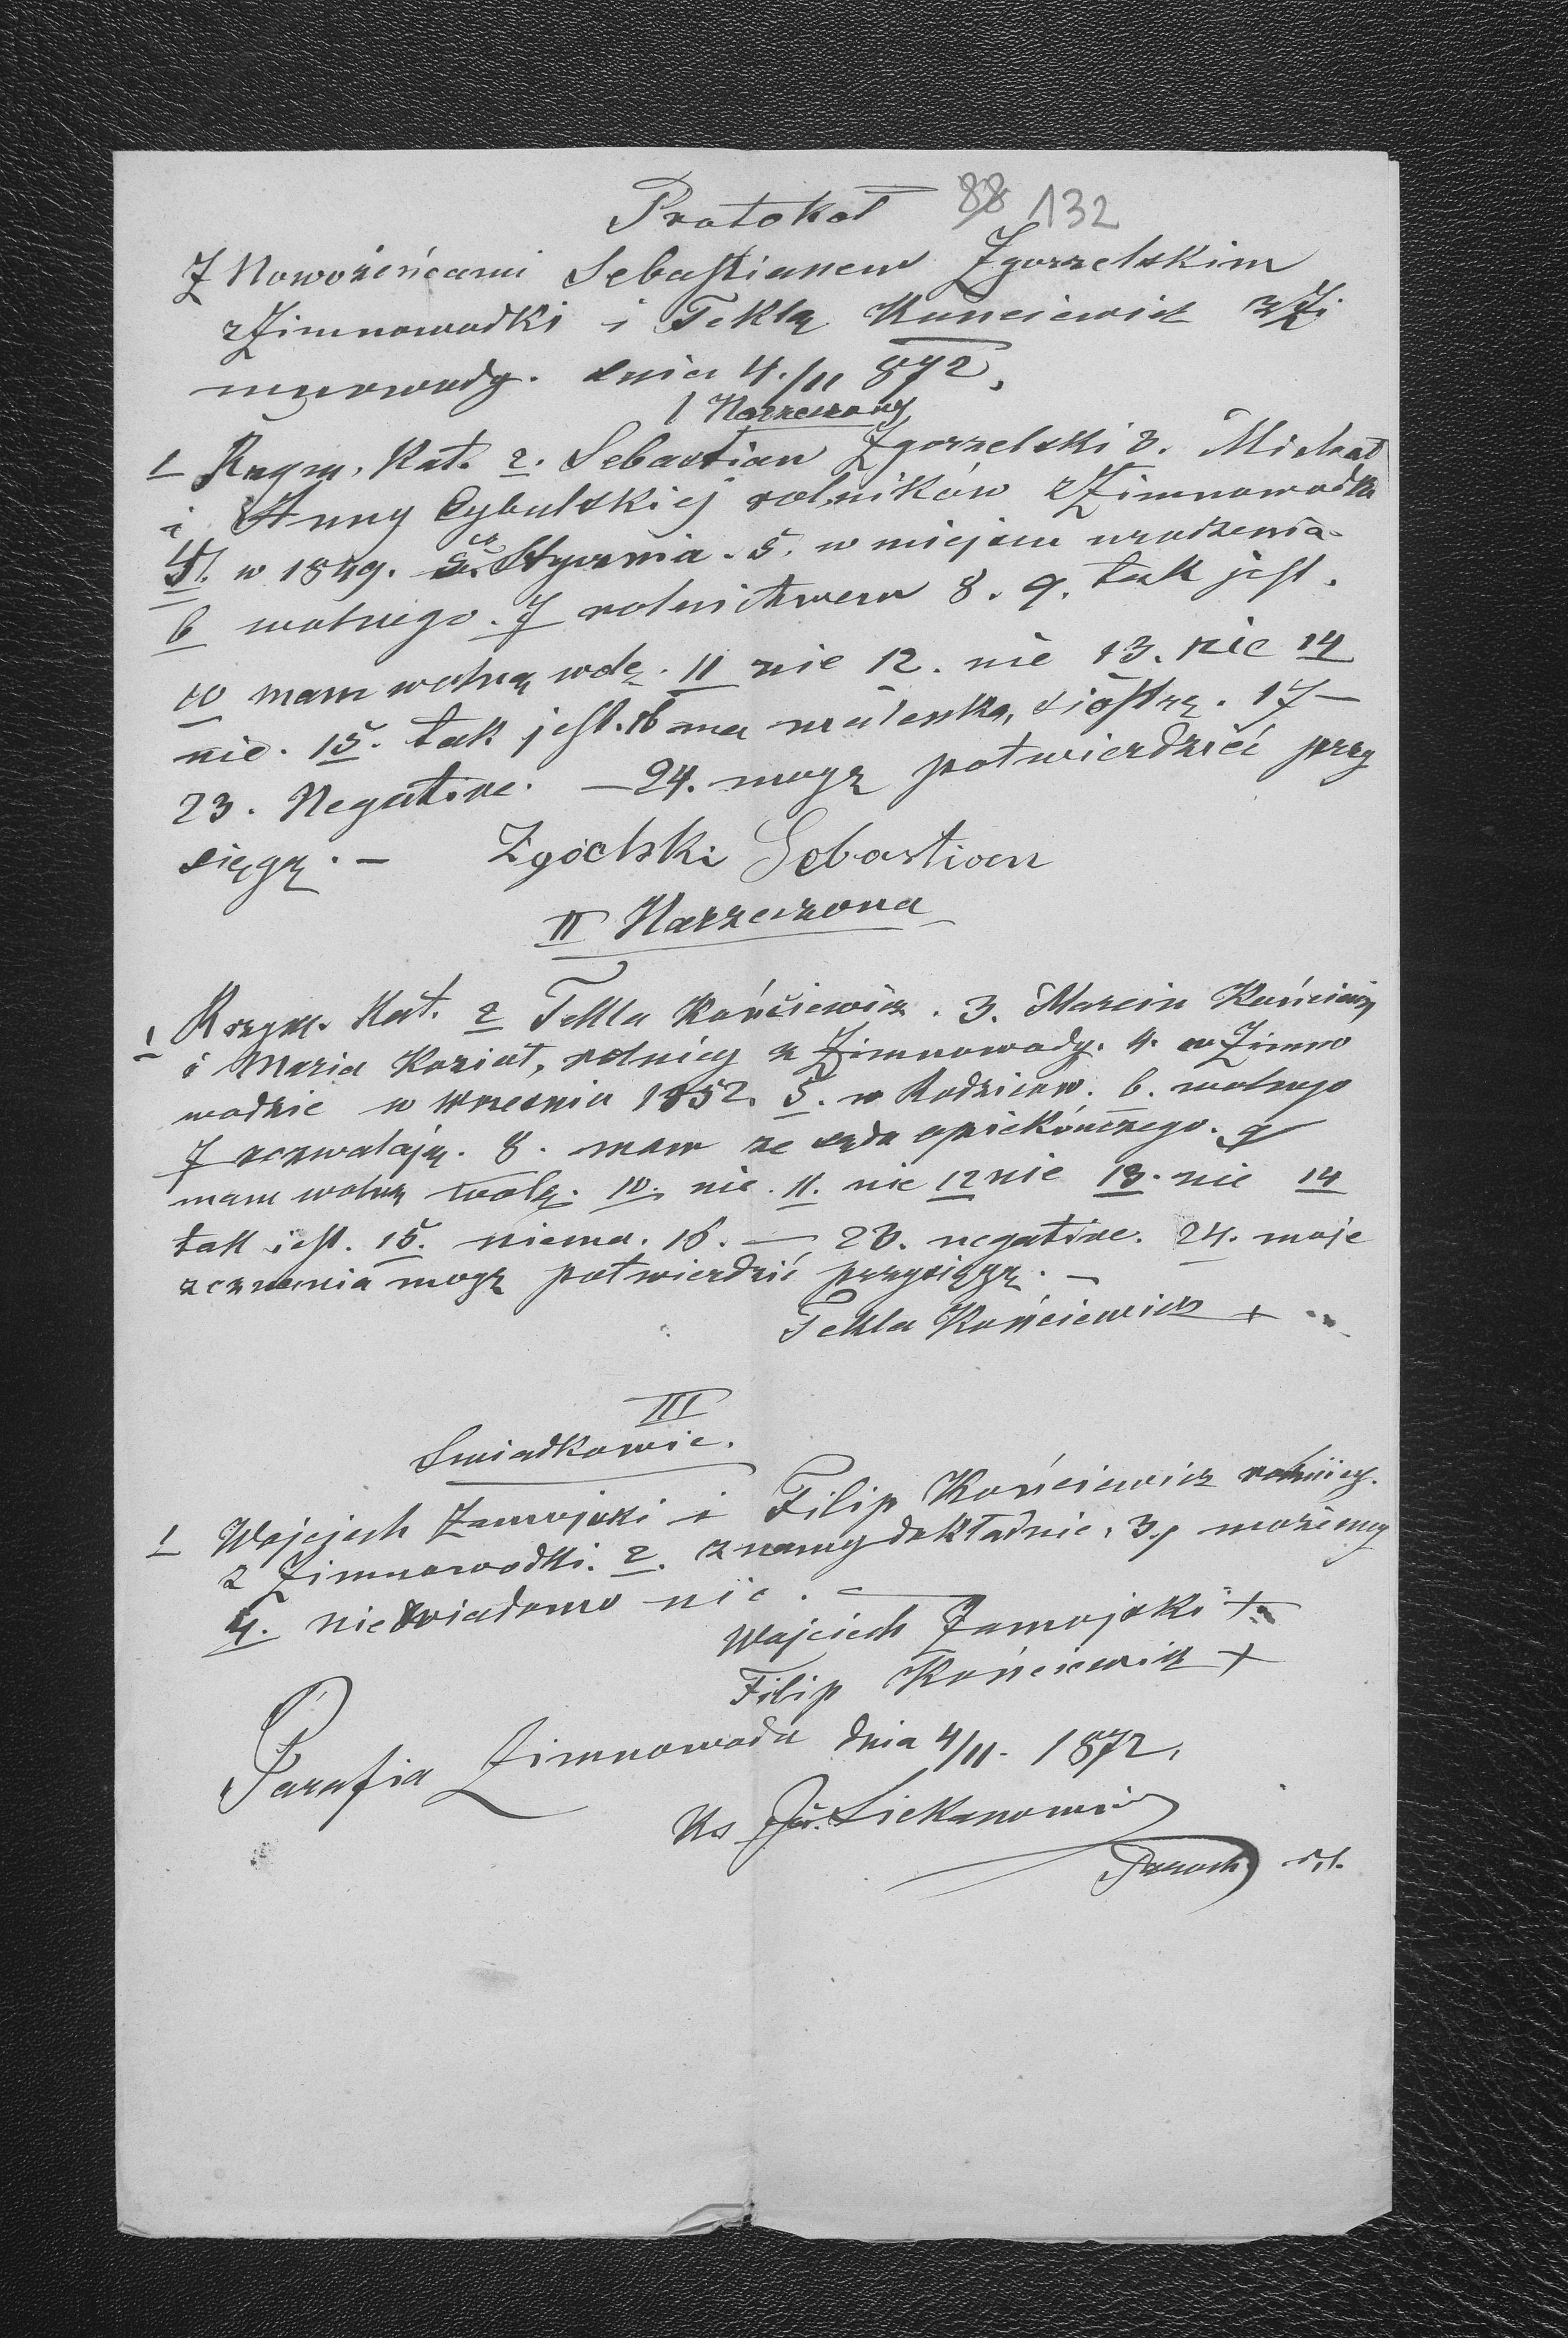 Protokół 88 132
Z Nowożeńcami Sebastianem Zgorzelskim
z Zimnowodki i Teklą Kunciewicz z Zi
mnowody. dnia 4./11 872.
I Narzeczony
1 Rzym. Kat. 2. Sebastian Zgorzelski 3. Michał
i Anny Cybulskiej rolników z Zimnowodki
4. w 1849. Stycznia. 5. w miejscu urodzenia
6 wolnego. 7 rolnictwem 8. 9. tak jest.
10 mam wolną wolę. 11 nie 12. nie 13. nie 14
nie. 15. tak jest. 16 ma siostrę. 17 —
23. Negative. — 24. mogę potwierdzić przy
sięgą. — Zgóelski Sebastian
II Narzeczona
1 Rzym. Kat. 2 Tekla Kończiewicz. 3. Marcin Kunciewicz
i Maria Kozioł, rolnicy z Zimnowody. 4. w Zimno
wodzie w wrześniu 1852. 5. w Rodziców. 6. wolnego
7 zezwalają. 8. mam ze sądu opiekóńczego. 9
mam wolną wolę. 10. nie. 11. nie 12 nie 13. nie 14
tak jest. 15. niema. 16. — 23. negative. 24. moje
zeznania mogę potwierdzić przysięgą. —
Tekla Kunciewicz +
III
Swiadkowie.
1 Wojciech Zamojski i Filip Kunciewicz rolnicy.
z Zimnowodki. 2. znamy dokładnie. 3. możemy
4. niewiadomo nic. —
Wojciech Zamojski +
Filip Kunciewicz +
Parafia Zimnowoda dnia 4/11. 1872.
Ks.
Paroch